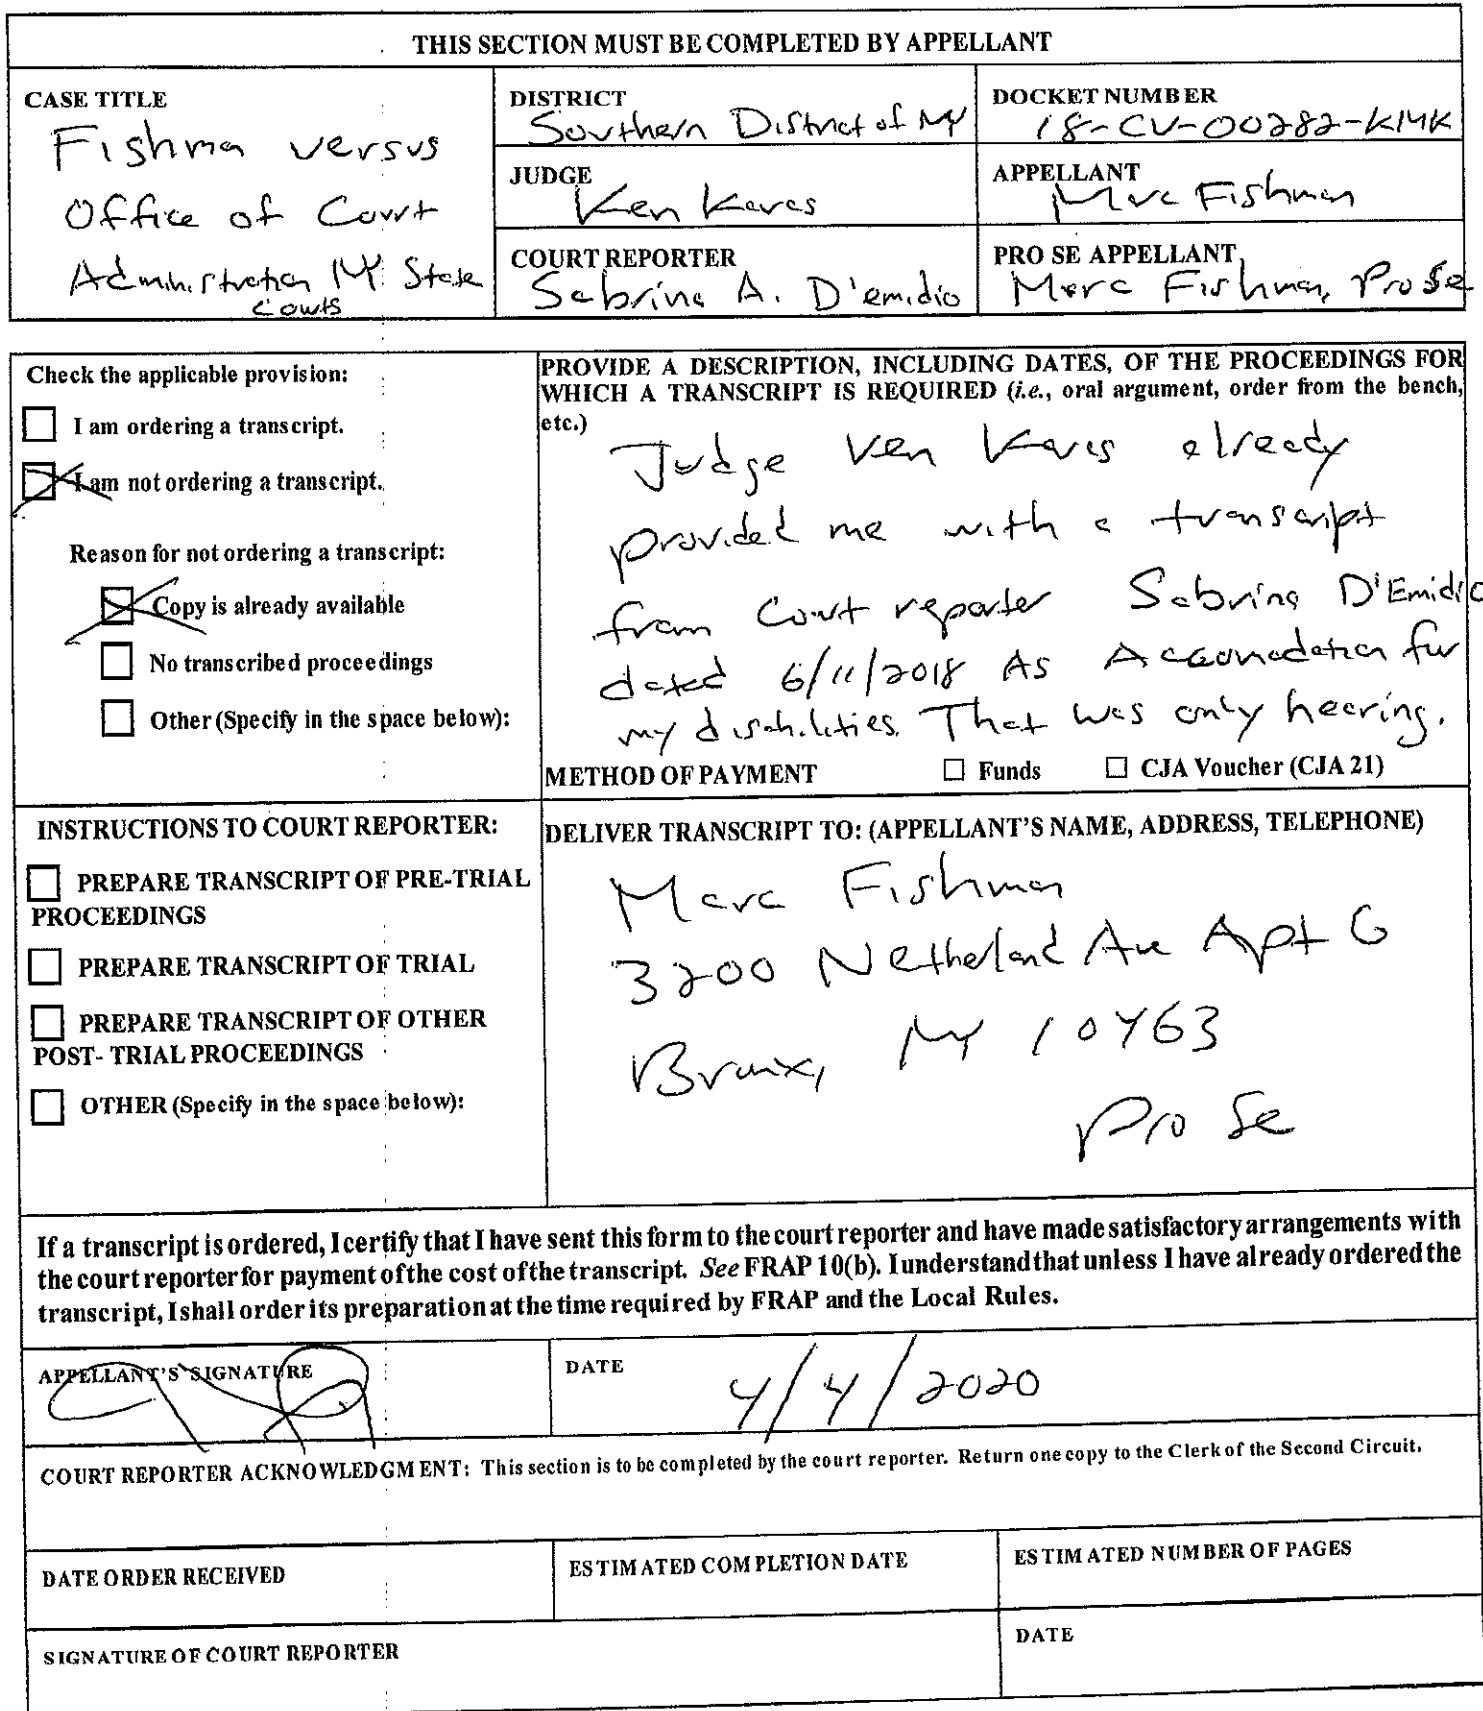 THIS SECTION MUST BE COMPLETED BY APPELLANT
CASE TITLE
Fishman versus
Office of Court
Administration NY State
Courts
DISTRICT
Southern District of NY
DOCKET NUMBER
18-CV-00282-KMK
JUDGE
Ken Karas
APPELLANT
Marc Fishman
COURT REPORTER
Sabrina A. D'emidio
PRO SE APPELLANT
Marc Fishman, Pro Se
Check the applicable provision:
I am ordering a transcript.
I am not ordering a transcript.
Reason for not ordering a transcript:
Copy is already available
No transcribed proceedings
Other (Specify in the space below):
PROVIDE A DESCRIPTION, INCLUDING DATES, OF THE PROCEEDINGS FOR
WHICH A TRANSCRIPT IS REQUIRED (i.e., oral argument, order from the bench,
etc.)
Judge Ken Karas already
provided me with a transcript
from Court reporter Sabrina D'Emidio
dated 6/11/2018 As Accomodation for
my disabilities. That was only hearing.
METHOD OF PAYMENT ☐ Funds ☐ CJA Voucher (CJA 21)
INSTRUCTIONS TO COURT REPORTER:
PREPARE TRANSCRIPT OF PRE-TRIAL
PROCEEDINGS
PREPARE TRANSCRIPT OF TRIAL
PREPARE TRANSCRIPT OF OTHER
POST- TRIAL PROCEEDINGS
OTHER (Specify in the space below):
DELIVER TRANSCRIPT TO: (APPELLANT'S NAME, ADDRESS, TELEPHONE)
Marc Fishman
3200 Netherland Ave Apt G
Bronx, NY 10463
Pro Se
If a transcript is ordered, I certify that I have sent this form to the court reporter and have made satisfactory arrangements with
the court reporter for payment of the cost of the transcript. See FRAP 10(b). I understand that unless I have already ordered the
transcript, I shall order its preparation at the time required by FRAP and the Local Rules.
APPELLANT'S SIGNATURE
DATE
4/4/2020
COURT REPORTER ACKNOWLEDGMENT: This section is to be completed by the court reporter. Return one copy to the Clerk of the Second Circuit.
DATE ORDER RECEIVED
ESTIMATED COMPLETION DATE
ESTIMATED NUMBER OF PAGES
SIGNATURE OF COURT REPORTER
DATE